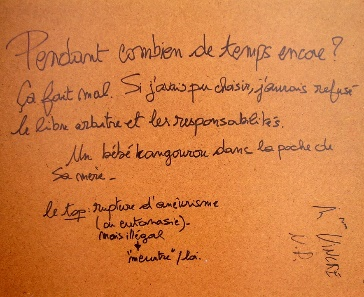 Pendant combien de temps encore?
Ça fait mal. Si j'avais pu choisir, j'aurais refusé
le libre arbitre et les responsabilités.
Un bébé kangourou dans la poche de
sa mère –
le top: rupture d'anévrisme
(ou euthanasie) –
mais illégal
"meurtre"/loi.